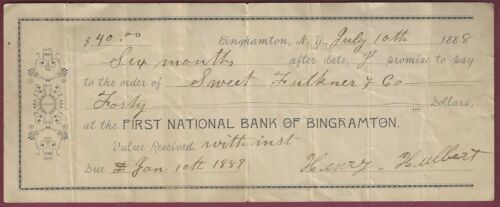 $40.00 Binghamton, N. Y., July 10th 1888
Six months after date, I promise to pay
to the order of Sweet Fulkner & Co
Forty 100 Dollars,
at the FIRST NATIONAL BANK OF BINGHAMTON.
Value Received, with inst
Due Jan 10th 1889 Henry Hulbert